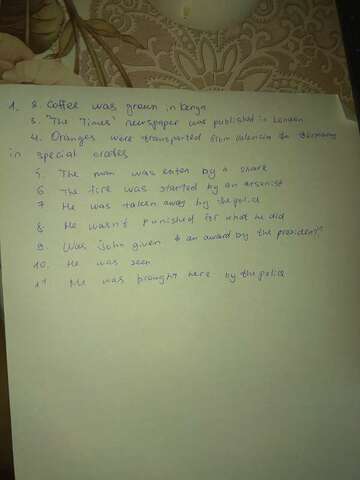 1. 2. Coffee was grown in Kenya
3. "The Times" newspaper was published in London
4. Oranges were transported from Valencia to Germany
in special crates
5. The man was eaten by a shark
6. The fire was started by an arsonist
7. He was taken away by the police
8. He wasn't punished for what he did
9. Was John given an award by the president?
10. He was seen
11. He was brought here by the police